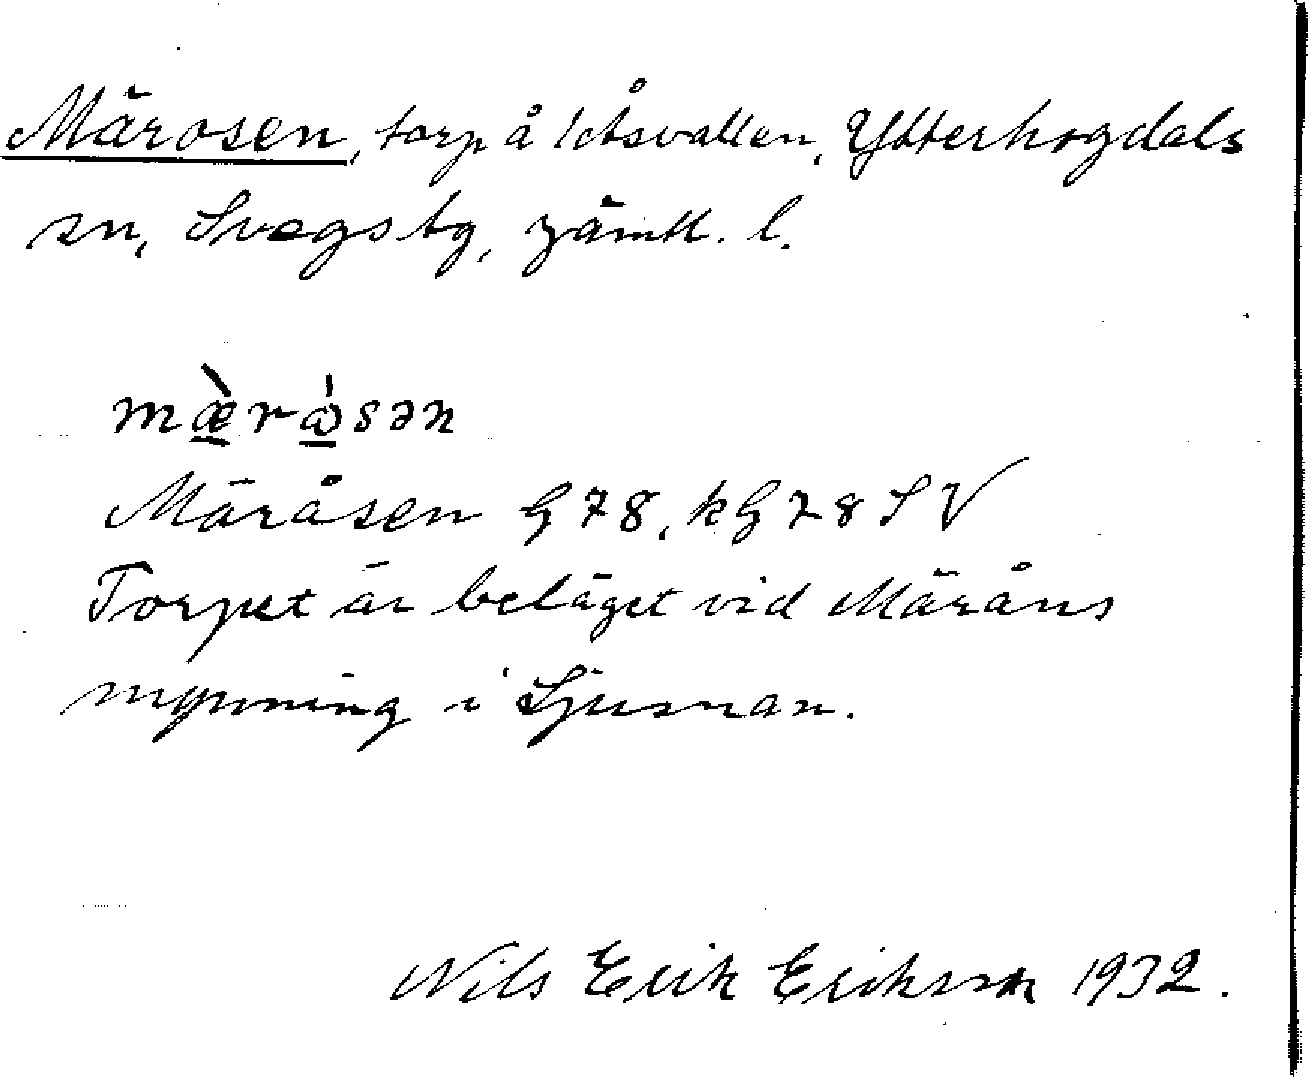 Märosen, torp å Åsvallen, Ytterhogdals
sn, Svegs tg, Jämtl. l.
mæ̀ròsən
Märåsen G 78, kG 78 SV
Torpet är beläget vid Märåns
mynning i Ljusnan.
Nils Erik Eriksson 1932.